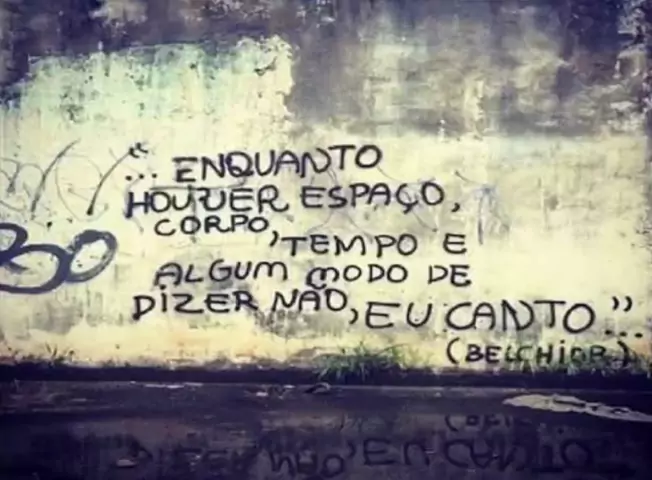 "... ENQUANTO
HOUVER ESPAÇO,
CORPO,
TEMPO E
ALGUM MODO DE
DIZER NÃO, EU CANTO"...
(BELCHIOR)